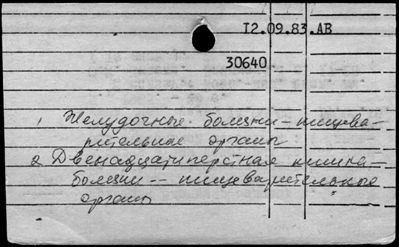 I2.09.83.AB
30640
1 Желудочные болезни - пищева-
рительные органы
2. Двенадцатиперстная кишка -
болезни -- пищеварительные
органы